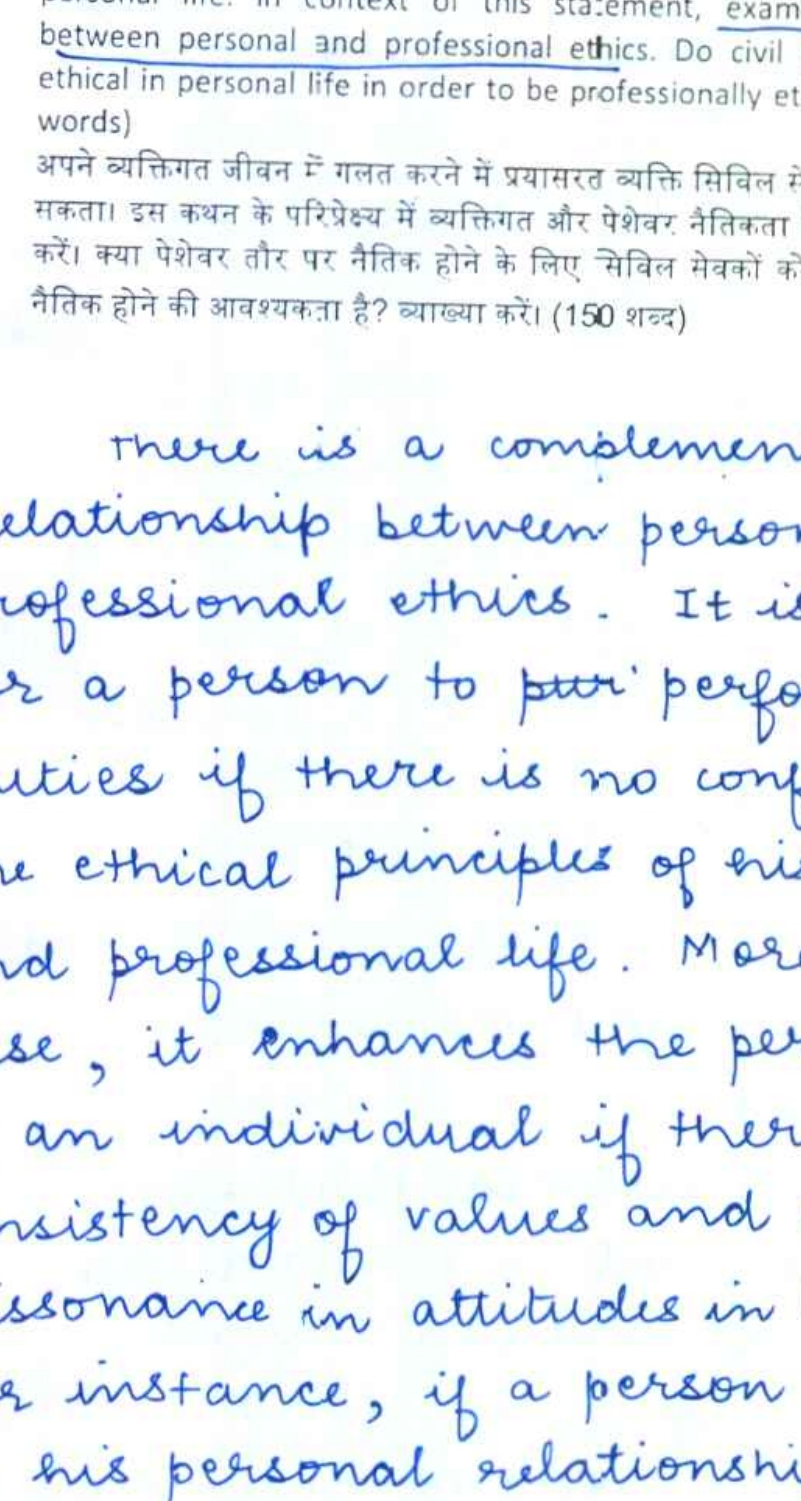 personal life. In context of this statement, exam
between personal and professional ethics. Do civil
ethical in personal life in order to be professionally et
words)
अपने व्यक्तिगत जीवन में गलत करने में प्रयासरत व्यक्ति सिविल से
सकता। इस कथन के परिप्रेक्ष्य में व्यक्तिगत और पेशेवर नैतिकता
करें। क्या पेशेवर तौर पर नैतिक होने के लिए सेविल सेवकों को
नैतिक होने की आवश्यकता है? व्याख्या करें। (150 शब्द)
There is a complemen
elationship between person
rofessional ethics. It is
r a person to pur perfo
uties if there is no conf
he ethical principles of his
nd professional life. Mor
se, it enhances the per
an individual if ther
nsistency of values and
issonance in attitudes in
r instance, if a person
his personal relationshi